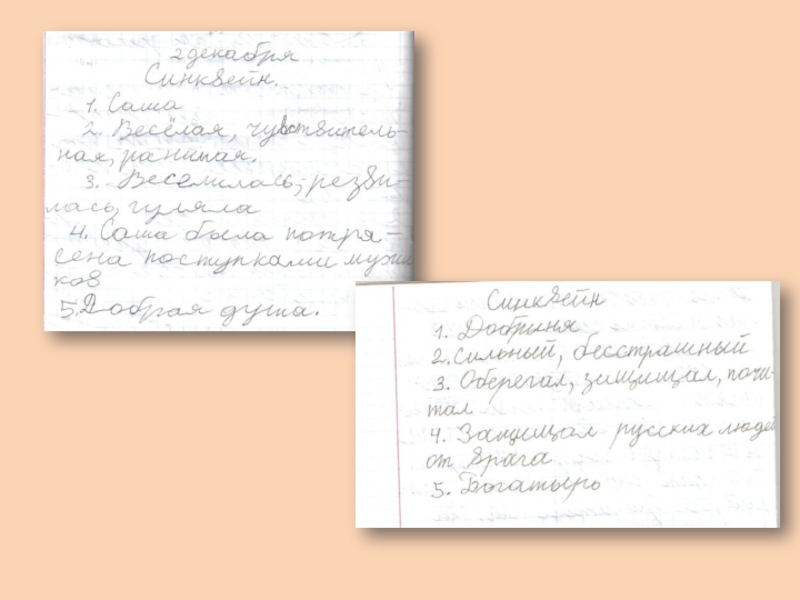 2 декабря
Синквейн.
1. Саша
2. Весёлая, чувствитель-
ная, ранимая.
3. Веселилась, резви-
лась, гуляла
4. Саша была потря-
сена поступками мужи
ков
5. Добрая душа.
Синквейн
1. Добрыня
2. Сильный, бесстрашный
3. Оберегал, зищищал, почи-
тал
4. Защищал русских людей
от врага
5. Богатырь